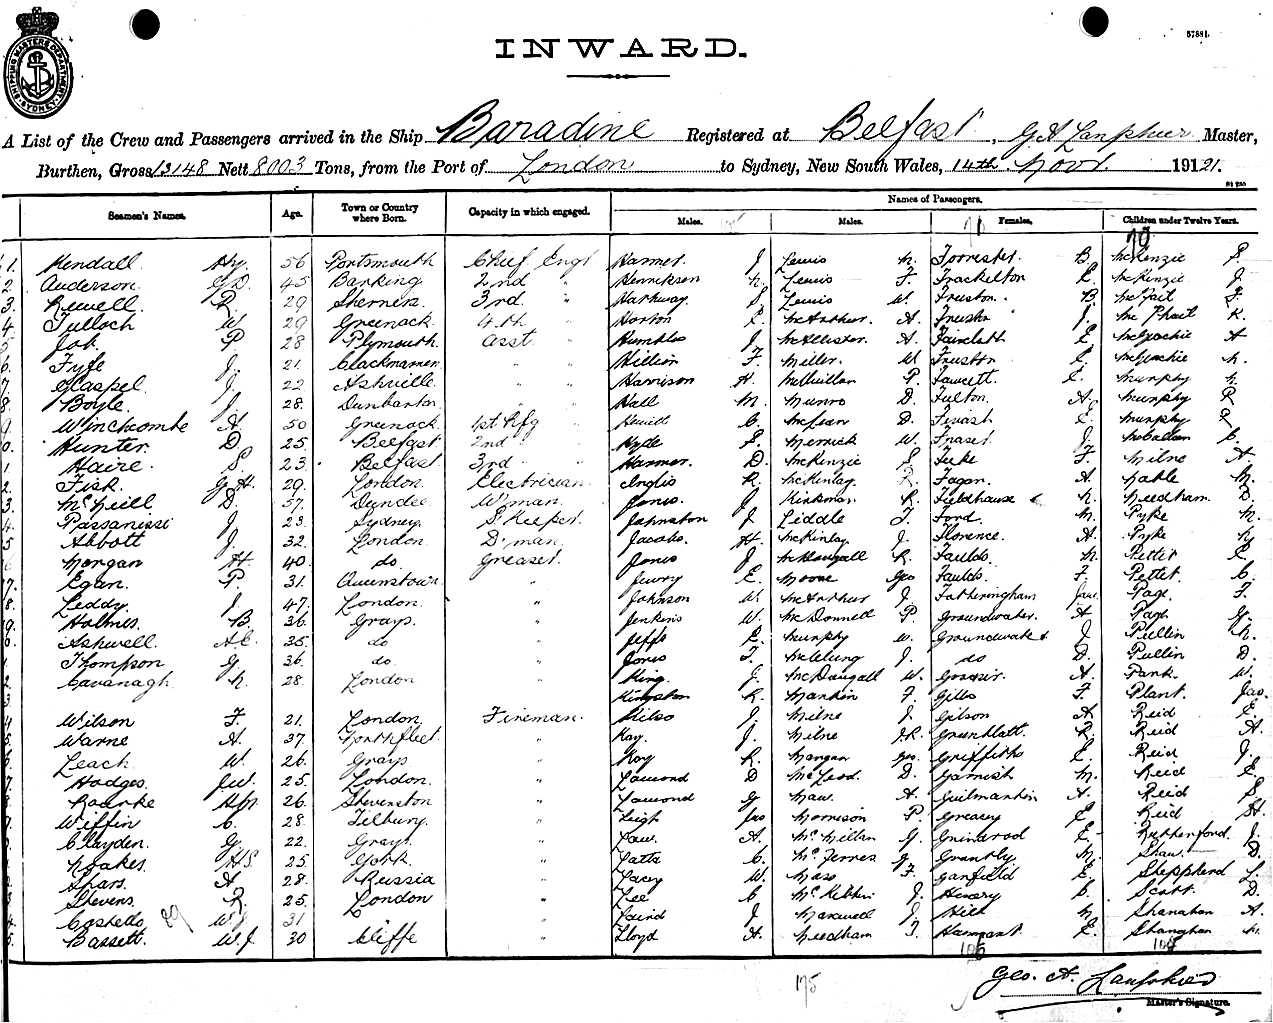 SHIPPING MASTERS DEPARTMENT SYDNEY
57881.
INWARD.
A List of the Crew and Passengers arrived in the Ship Baradine Registered at Belfast, G A Lanphier Master,
Burthen, Gross 13148 Nett 8003 Tons, from the Port of London to Sydney, New South Wales, 14th Novr. 1921.
Seamen's Names. Age. Town or Country where Born. Capacity in which engaged. Names of Passengers.
Males. Males. Females. Children under Twelve Years.
1. Kendall Hy 56 Portsmouth Chief Engr Harmer J. Lewis N. Forrester B. McKenzie S.
2 Anderson G.D. 45 Barking 2nd " Henrikson N. Lewis F. Frackelton E. McKenzie J.
3 Rewell R. 29 3rd " Harkway S. Lewis W. Fruston B. McFail F.
4 Tulloch W. 29 Greenock 4th " Horton E. McArthur A. J. McPhail K.
5 Job P 28 Plymouth Asst " Humbles J. McAllister A. E McGeachie A
6. Fyfe J. 21. Clackmannan " " F. Miller W Fruston E. McGeachie N.
7. Glaspel J. 22 Ashville " " Harrison H. McMillan P. Fawcett. E. Murphy N.
8. Boyle J 28. Dunbarton " " Hall M. Munro D. Fulton A. Murphy R
9 Winchcombe A. 50 Greenock 1st Rfg " C. McLean D. E. Murphy R
0. Hunter D. 25. Belfast 2nd " Hyde E. Merrick W. Fraser J. C.
1 Haire S. 23. Belfast 3rd " Harmer. D. McKenzie S Feke F. Milne A
2. Fisk G.H. 29. London Electrician Inglis R. McKinlay R. Fagan. A. Nable M.
3. McNeill D. 57. Dundee W'man. Jones. J. Kinkman R. Fieldhouse N. Needham D.
4. Passanissi J 23. Sydney S'Keeper. Johnston J. Liddle T. Ford. M. Pyke M.
5 Abbott J. 32. London D'man. Jacobs. H. McKinlay J. Florence. A. Pyke N.
Morgan H. 40. do. Greaser. Jones J McDougall R. Faulds. N. Petter E.
7. Egan. P. 31. Queenstown " Jewry E. Moore Geo Faulds. F. Pettet. C.
8. Leddy J 47. London " Johnson W. McArthur J. Fotheringham Jas. Page F.
9. Holmes. B. 36. Grays. " Jenkins W. McDonnell P. Groundwater. A Page G.
0. Ashwell. A.C. 35. do " Jeffs E. Murphy W. Groundwater J Pullin N.
1. Thompson G. 36. do. " Jones F. McClung J. do D. Pullin D.
2 Cavanagh N. 28. London " King. J. McDougall W. Grosser. A. Pank. W.
3 Kingston R. Mankin F. Gibbs F. Plant. Jas.
4 Wilson F. 21. London Fireman. Kelso J. Milne J. Gilson A Reid E.
5. Warne A. 37. Northfleet " Kay. J. Milne R. R. Reid A.
6. Leach W. 26. Grays " Kay R. Mangan Geo. Griffiths E. Reid J.
7. Hodges J.W. 25. London. " Lamond D McLeod. D. Garnish M. Reid E.
8. Roarke 26. Stevenston " Lamond G Maw. A. Guilmartin A. Reid S
9. Wiffin C. 28. Tilbury. " Leigh Jas Morrison P. Greasey E. Reid St.
Clayden. G. 22. Grays " Law. A. McMillan G. Grimrod E. Rutherford J.
Noakes. H.S. 25. " Latta C. G. Grantly M. Shaw. D.
Spars. A 28. Russia " Lacey W. Mase F. Garfield E. Shepperd L.
3 Stevens R 25. London " Lee C J. Hussey C. Scott. D.
4. Costello W.J 31 " Laird J. Maxwell J. Hill M Shanahan A.
5. Bassett. W.J 30 Cliffe " Lloyd H. Needham T. Harmant E. Shanahan
89
175
Geo. A. Lanphier
Master's Signature.